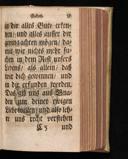 Gebett.
in dir alles Gute erken-
nen, und alles ausser dir
gering achten mögen; da-
mit wir nichts mehr su-
chen in dem Rest unsers
Lebens, als allein, daß
wir dich gewinnen, und
in dir gefunden werden.
Das gib uns aus Gna-
den um deiner ewigen
Liebe willen, und als leh-
re uns recht verstehen
und